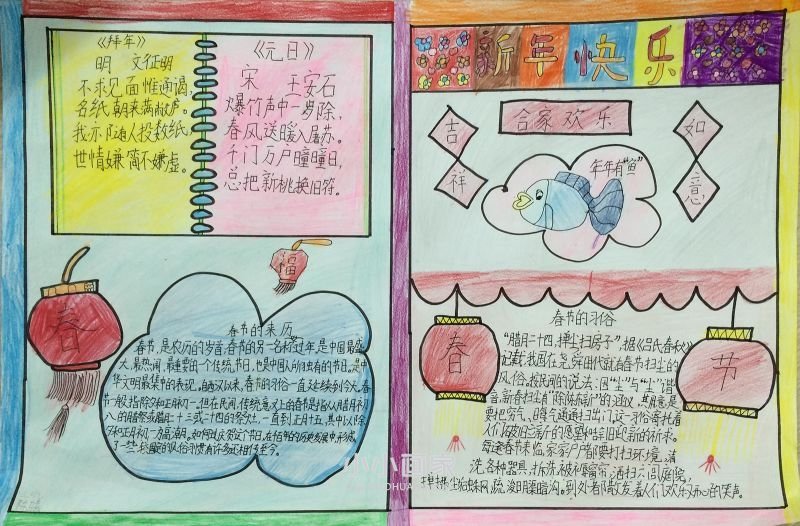 《拜年》
明 文征明
不求见面惟通谒,
名纸朝来满敝庐。
我亦随人投数纸,
世情嫌简不嫌虚。
《元日》
宋 王安石
爆竹声中一岁除,
春风送暖入屠苏。
千门万户曈曈日,
总把新桃换旧符。
春
福
春节的来历
春节,是农历的岁首,春节的另一名称过年,是中国最盛
大、最热闹、最重要的一个传统节日,也是中国人所独有的节日。是中
华文明最集中的表现。自西汉以来,春节的习俗一直延续到今天。春
节一般指除夕和正月初一。但在民间,传统意义上的春节是指从腊月初
八的腊祭或腊月二十三或二十四的祭灶,一直到正月十五,其中以除
夕和正月初一为高潮。如何过庆贺这个节日,在
了一些较
新年快乐
合家欢乐
吉祥
如意
年年有“鱼”
春节的习俗
“腊月二十四,掸尘扫房子”,据《吕氏春秋》
记载,我国在尧舜时代就有春节扫尘的
风俗。按民间的说法:因“尘”与“陈”谐
音,新春扫尘有“除陈布新”的涵义,其用意是
要把穷气、晦气通通扫出门。这一习俗寄托着
人们破旧立新的愿望和辞旧迎新的祈求。
每逢春节来临,家家户户都要打扫环境,清
洗各种器具,拆洗被褥窗帘,洒扫六闾庭院,
掸拂尘垢蛛网,疏浚明渠暗沟。到处
春
节